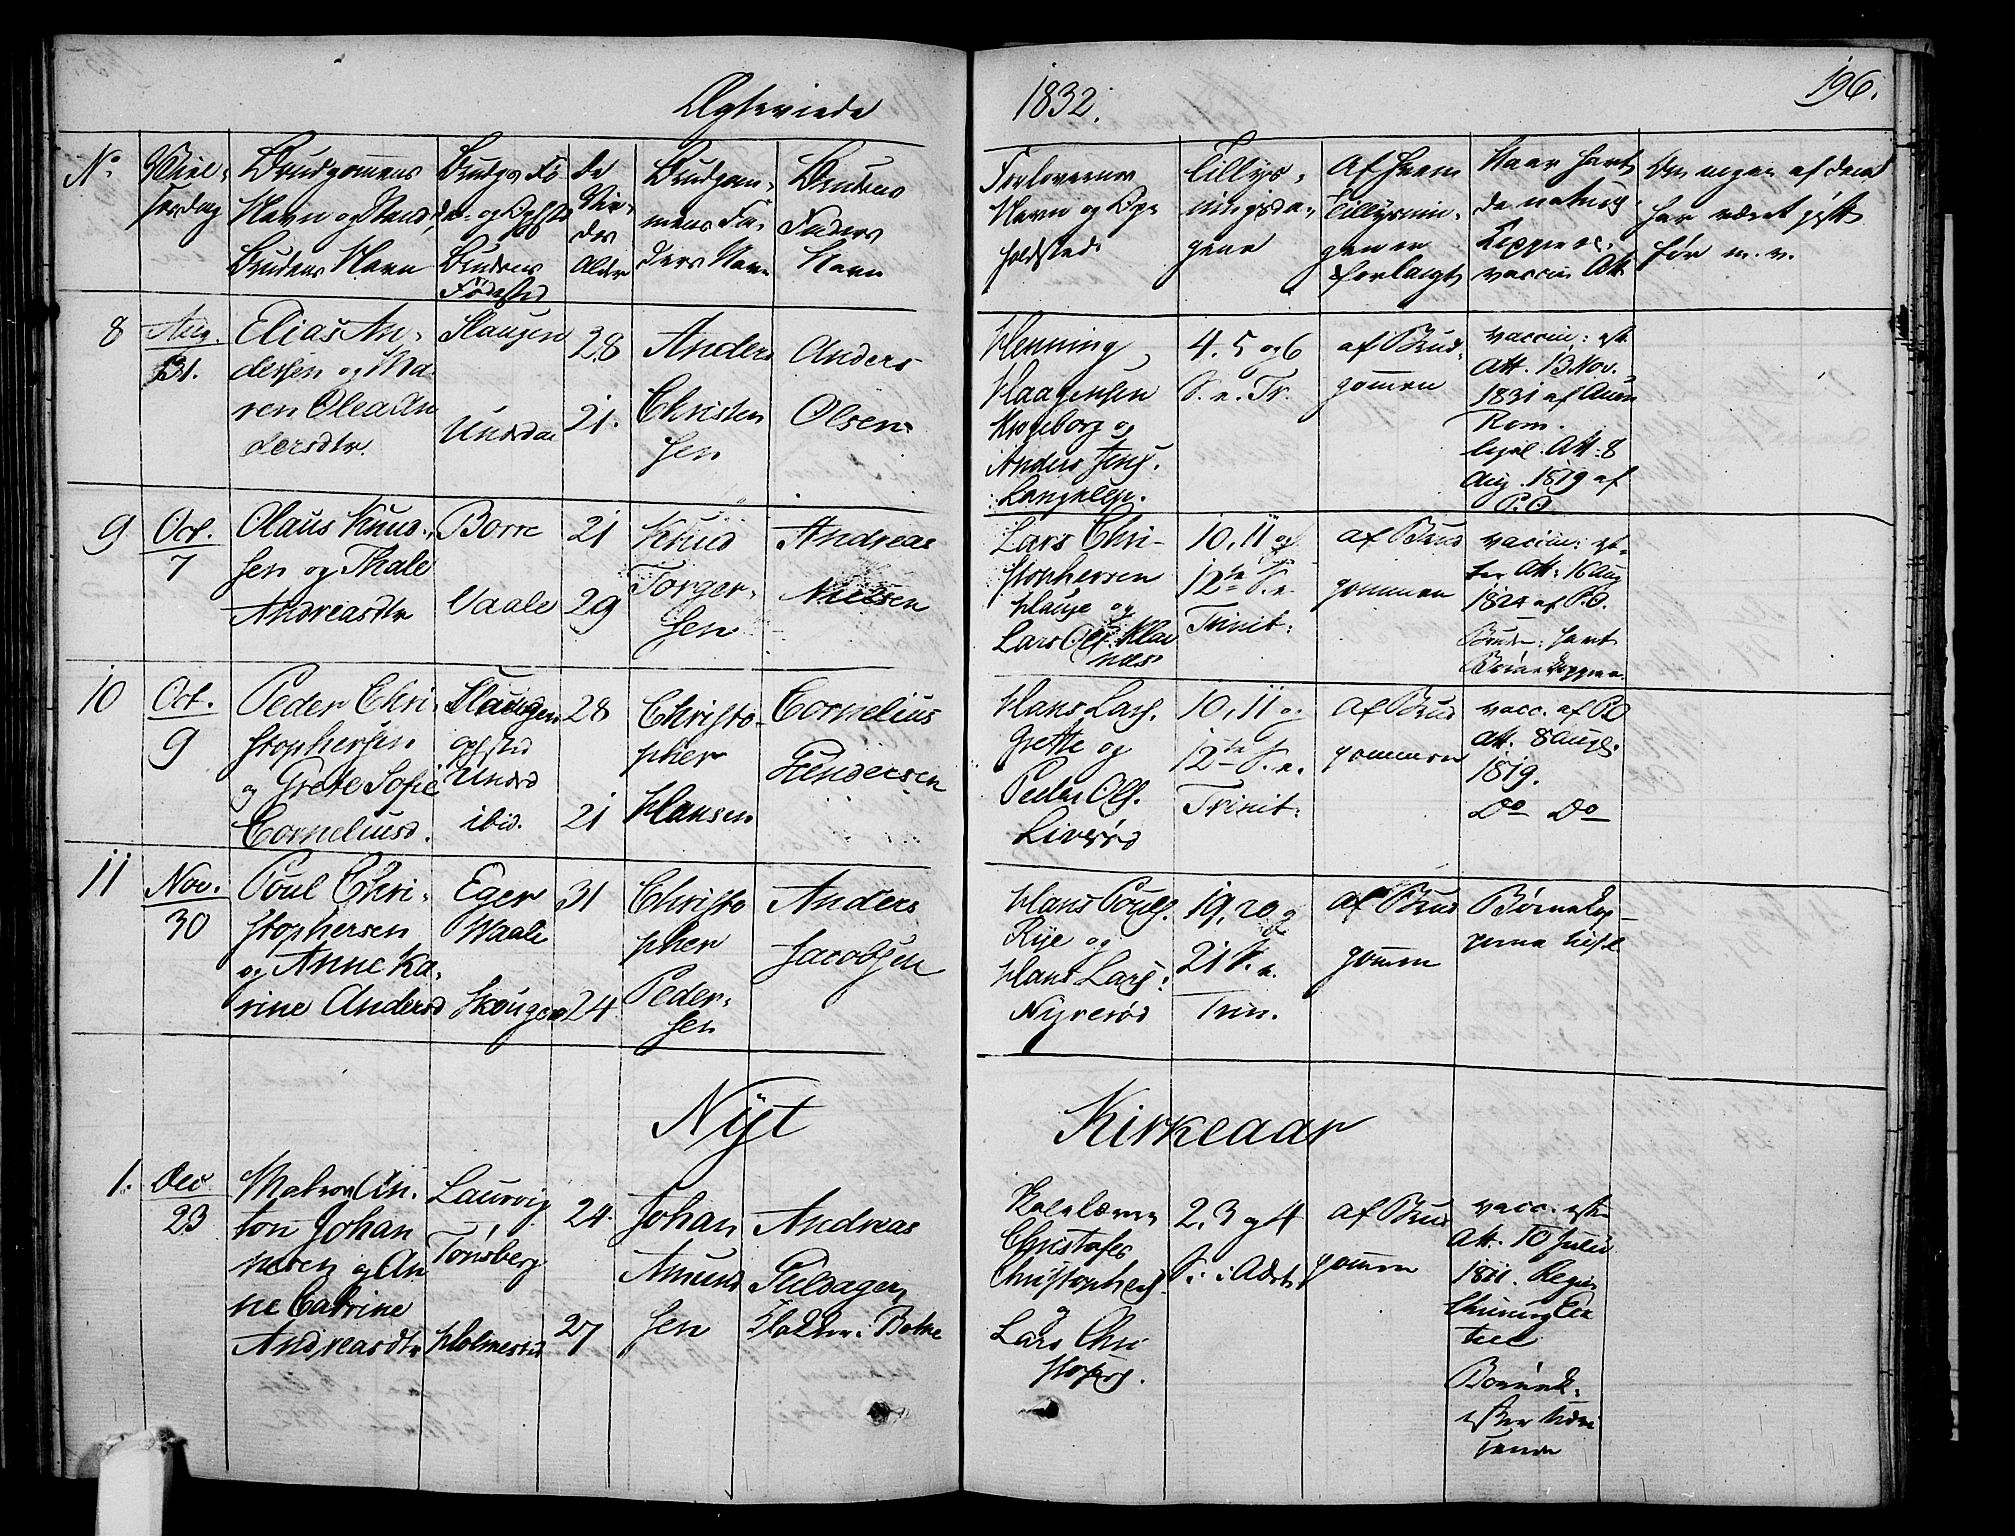 Ægteviede
1832.
196.
No.
Viel-
sesdag
Brudgomens
Navn og Stand,
Brudens Navn
Brudgs Fø
de- og Opfsted
Brudens
Fødested
De
Vie-
des
Alder
Brudgom-
mens Fa-
ders Navn
Brudens
Faders
Navn
Forlovernes
Navn og Op-
holdsted
Tillys-
ningsda-
gene
Af hvem
Tillysnin-
gen er
forlangt
Naar havt
de naturl.
Kopper ell.
vaccin. Att.
Om nogen af dem
har været gift
før m. v.
8
Aug.
31.
Elias An-
dersen og Ma-
ren Olea An
dersdtr.
Slaugen
Undrdal
28
21.
Anders
Christen
sen
Anders
Olsen
Henning
Haagensen
Krogeborg og
Anders Jens.
Langeløp.
4. 5 og 6
S. e. Tr.
af Brud-
gommen
vaccin: eft.
Att. 13 Nov.
1831 af
Rom.
ligel. Att. 8
Aug. 1819 af
P.O.
9
Oct.
7
Olaus Knud-
sen og Thale
Andreasdtr
Borre
Vaale
21
29
Knud
Torger-
sen
Andreas
Nielsen
Lars Chri-
stophersen
Hauge og
Lars Ols. Klav
næs
10, 11 og
12te S. e.
Trinit:
af Brud
gommen
vaccin: ef-
ter Att: 16 Aug
1824 af P.O.
Brud: havt
Børnekopperne
10
Oct.
9
Peder Chri-
stophersen
og Grete Sofie
Corneliusd.
Slaugen
opfsted
Undrd
ibid.
28
21
Christo-
pher
Hansen
Cornelius
Gundersen
Hans Lars.
Grette og
Peder Ols.
Liverød
10, 11 og
12te S. e.
Trinit:
af Brud
gommen
vacc. af PO
Att. 8 Augs.
1819.
Do Do
11
Nov.
30
Poul Chri-
stophersen
og Anne Ka-
rine Andersd
Eger
Waale
Skouger
31
24
Christo
pher
Peder-
sen
Anders
Jacobsen
Hans Pouls.
Rye og
Hans Lars.
Nyrerød
19, 20 og
21 S. e.
Trin.
af Brud
gommen
Børnekop-
perne
Nyt
Kirkeaar
1.
Dec
23
Matros An-
ton Johan
nesen og An
ne Catrine
Andreasdtr
Laurvig
Tønsberg
Holmestrd
24
27
Johan
Amund
sen
Andreas
Guldager
Klokker i Botne
Skolelærer
Christofer
Christophers.
og
Lars Chri
stophers.
2, 3 og 4
S. i Advt
af Brud
gommen
vacc. efter
Att. 10 Julii
1811.
Børnek.
efter